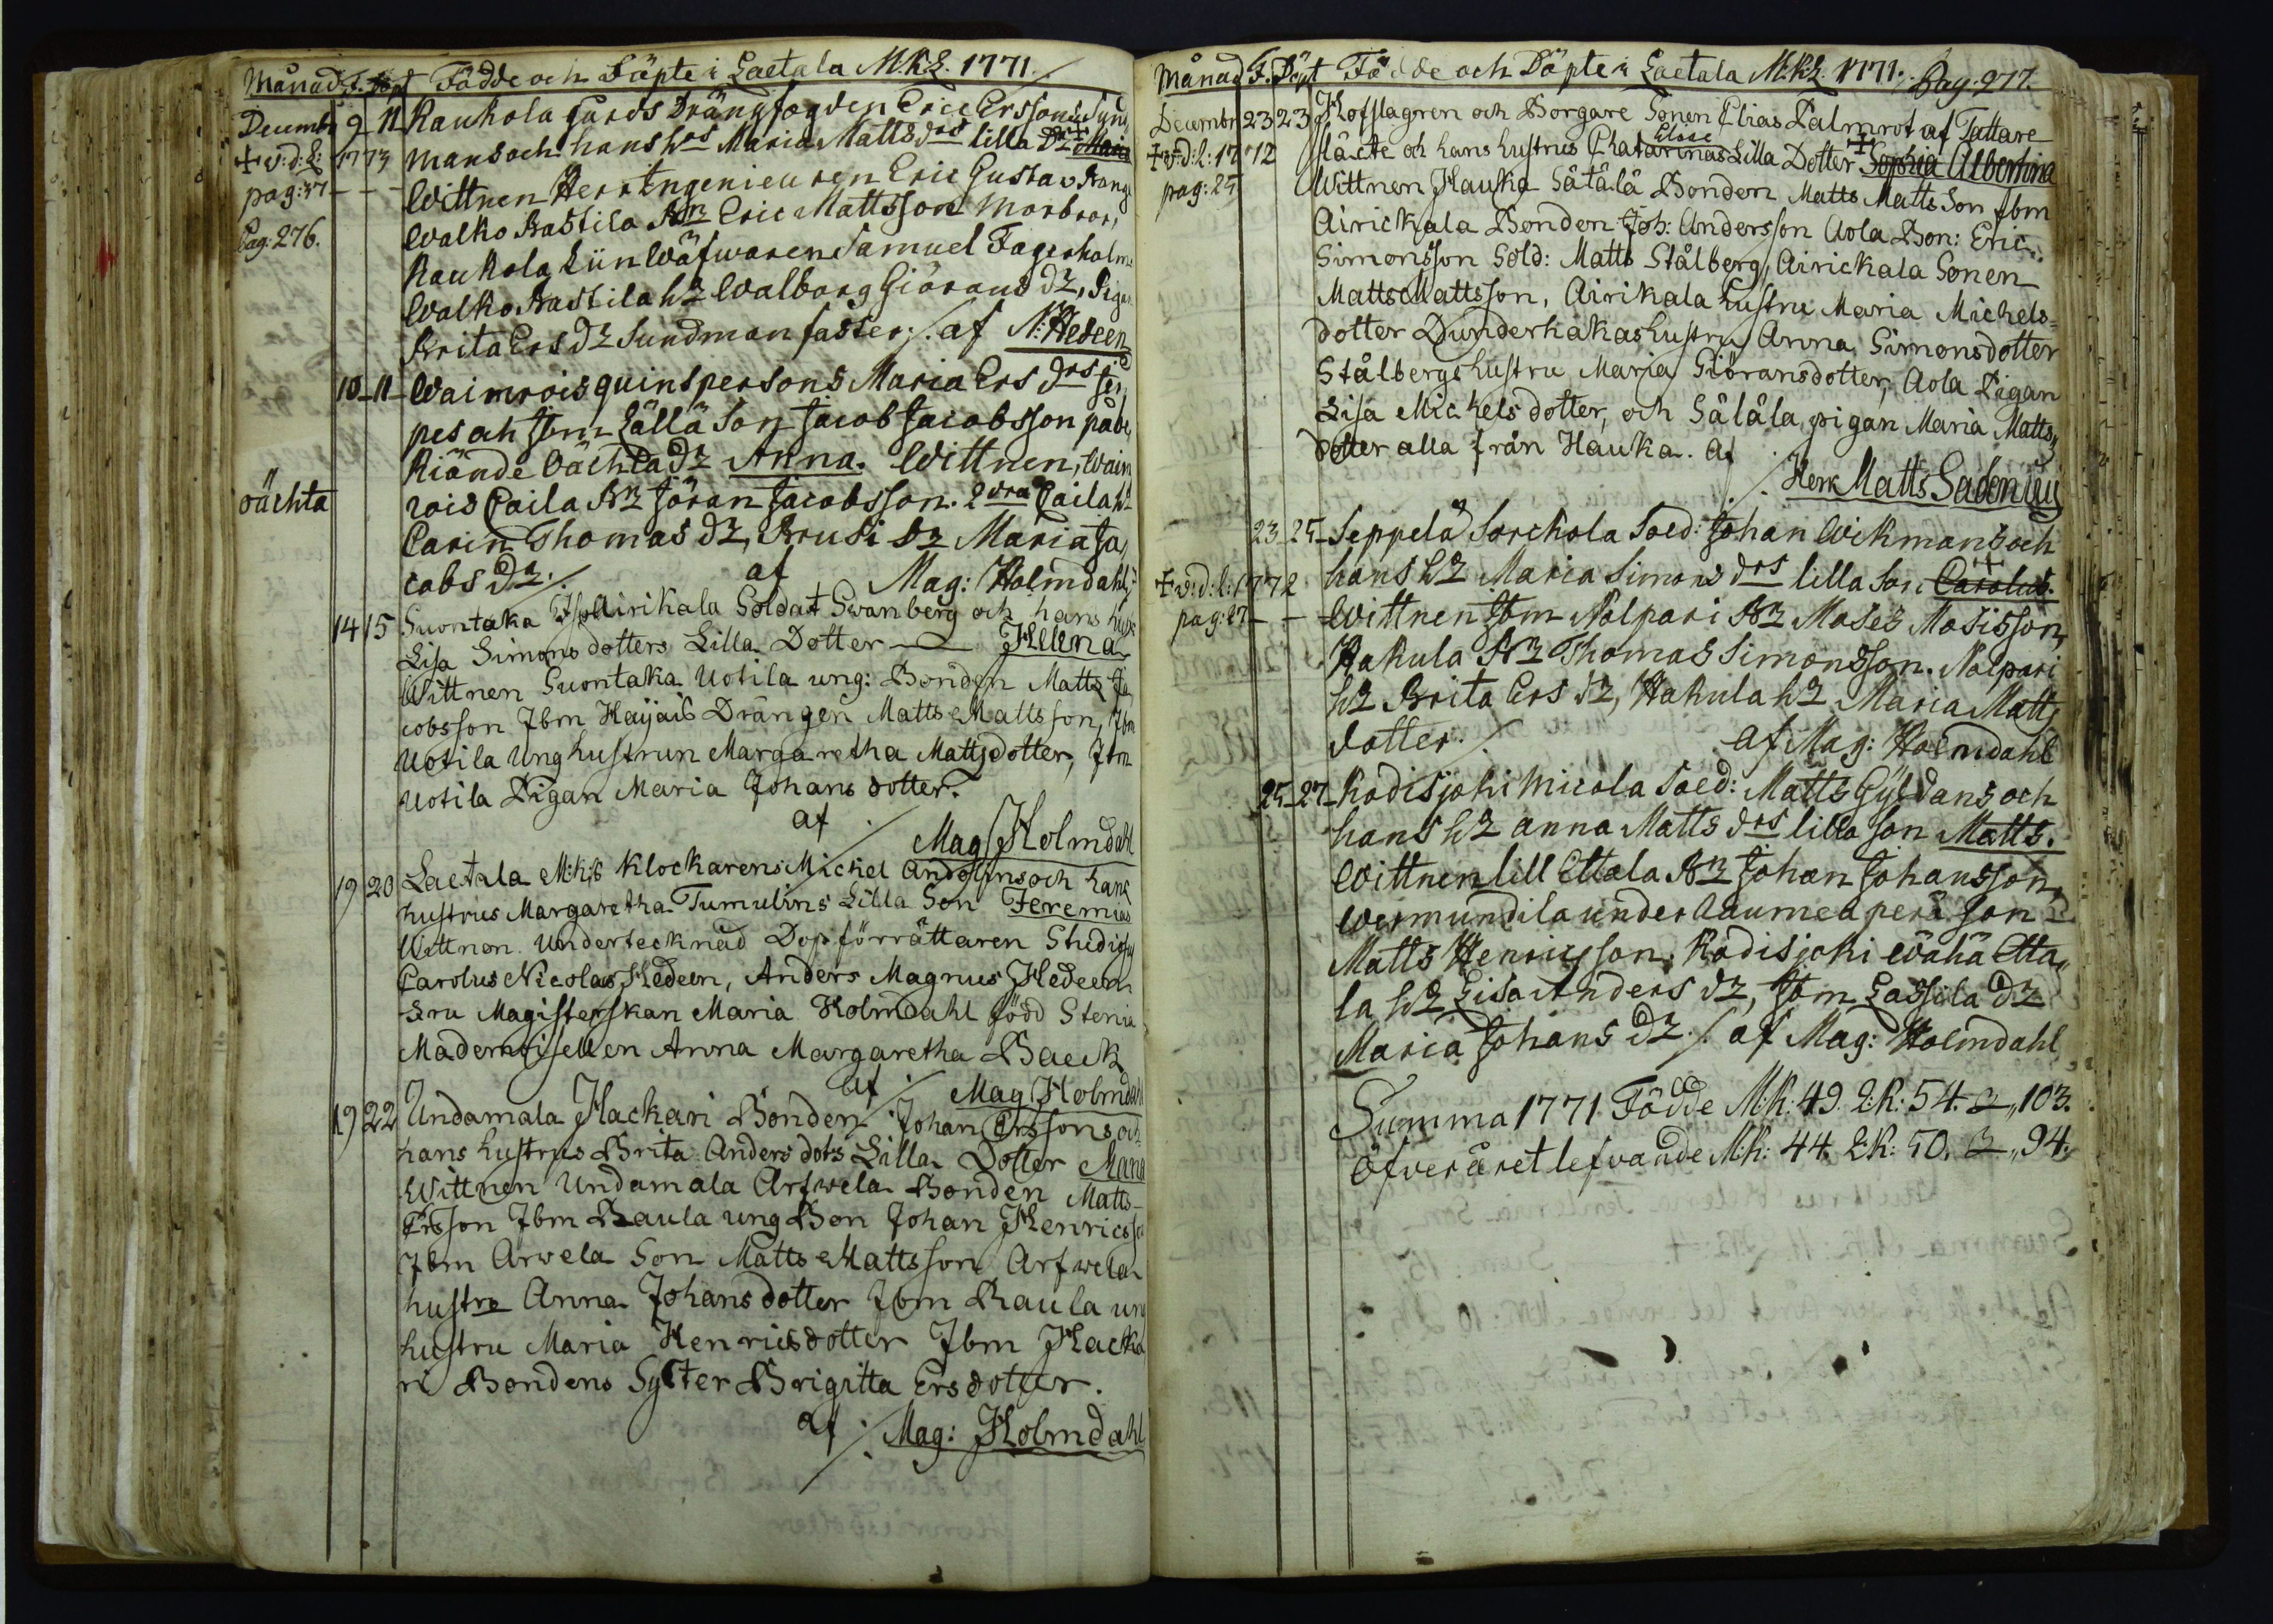 Månad F. Döpt Födde och Döpte i Laetala M.K.L. 1771.
Decembr 9 11 Kauhola gårds Drängfogden Eric Erssons Syng
✝ v:d:l: 1773 mans och hans hrs Maria Matts drs lilla Dr Maria
pag: 37 - - - Wittnen Herr Ingenieuren Eric Gustav Krang
Walko Bastila Bn Eric Mattsson morbror,
Pag: 276.
Kaukola Linwäfwaren Samuel Fagerholm
Walko Bastila hr Walborg Giörans dr, Pigan
Brita Ers dr Sundman faster ./. af N: Hedeen
10 11 Waimrois quinspersons Maria Ers drs
pes och Ibm Källä Son Jacob Jacobsson påbe
oächta
kiände oächta dr Anna. Wittnen, Waim
rois Paila Bn Jöran Jacobsson. 2dra Paila hr
Carin Thomas dr, Krusi Dr Maria Ja
cobs dr ./. af Mag: Holmdahl
14 15 Suontaka Isoairikala Soldat Swanberg och hans hustr
Lisa Simons dotters Lilla Dotter Helena
Wittnen Suontaka Uotila ung: Bonden Matts Ja
cobsson Ibm Haijais Drängen Matts Mattsson, Ibm
Uotila Unghustrun Margaretha Mattsdotter, Ibm
Uotila Pigan Maria Johans dotter.
af ./. Mag Holmdahl
19 20 Laetala M:k:s Klockarens Michel Andolins och hans
hustrus Margaretha Tumulins Lilla Son Jeremias
Wittnen. Undertecknad Dopförrättaren Studios
Carolus Nicolaus Hedeen, Anders Magnus Hedeen
Fru Magisterskan Maria Holmdahl född Stenia
Mademoisellen Anna Margaretha Baeck
af ./. Mag Holmdahl
19 22 Undamala Hackari Bonden Johan Erssons och
hans hustrus Brita Anders dotrs Lilla Dotter Maria
Wittnen Undamala Arfwela Bonden Matts
Ersson Ibm Raula ung Bon Johan Henricsson
Ibm Arvela Son Matts Mattsson Arfwela
hustru Anna Johans dotter Ibm Raula ung
hustru Maria Henricsdotter Ibm Hacka
ri Bondens Syster Brigitta Ersdotter.
af ./. Mag: Holmdahl
Månad F. Döpt Födde och Döpte i Laetala M:K:L. 1771. Pag: 277.
Decembr 23 23 Hofslagren och Borgare Sonen Elias Palmrot af Tattare
Elisae
✝ v:d:l: 1772 släcte och hans hustrus Chatarinas Lilla Dotter Sophia Albertina
pag: 25 Wittnen Hauka Sätälä Bonden Matts Matts Son Ibm
Airickala Bonden Joh: Andersson Aola Bon: Eric
Simonsson Sold: Matts Stålberg, Airickala Sonen
Matts Mattsson, Airikala hustru Maria Michels=
dotter Dunderhakas hustru Anna Simonsdotter
Stålbergs hustru Maria Giöransdotter, Aola Pigan
Lisa Michelsdotter, och Säläla pigan Maria Matts
dotter alla från Hauka. Af
./. Herr Matts Sadenius
23 25 Seppelä Sorckola Soed: Johan Wikmans och
✝ v:d:l: 1772 hans hr Maria Simons drs lilla Son Carolus.
pag: 27 - - Wittnen Ibm Nalpari Bn Moses Mosisson,
Hakula Bn Thomas Simonsson. Nalpari
hr Brita Ers dr, Hakula hr Maria Matts
dotter ./. af Mag: Holmdahl
25 27 Kodisjoki Micola Soed: Matts Gyldans och
hans hr Anna Matts drs lilla Son Matts.
Wittnen lill Ettala Bn Johan Johansson,
Wermundila under Raumeaperä Son
Matts Henricsson. Kodisjoki Wähä Etta
la hr Lisa Anders dr, Ibm Lassila dr
Maria Johans dr ./. af Mag: Holmdahl
Summa 1771 Födde M.K: 49. Q:K: 54. S 103.
Öfver året lefvande M.K: 44. Q.K: 50. S 94.